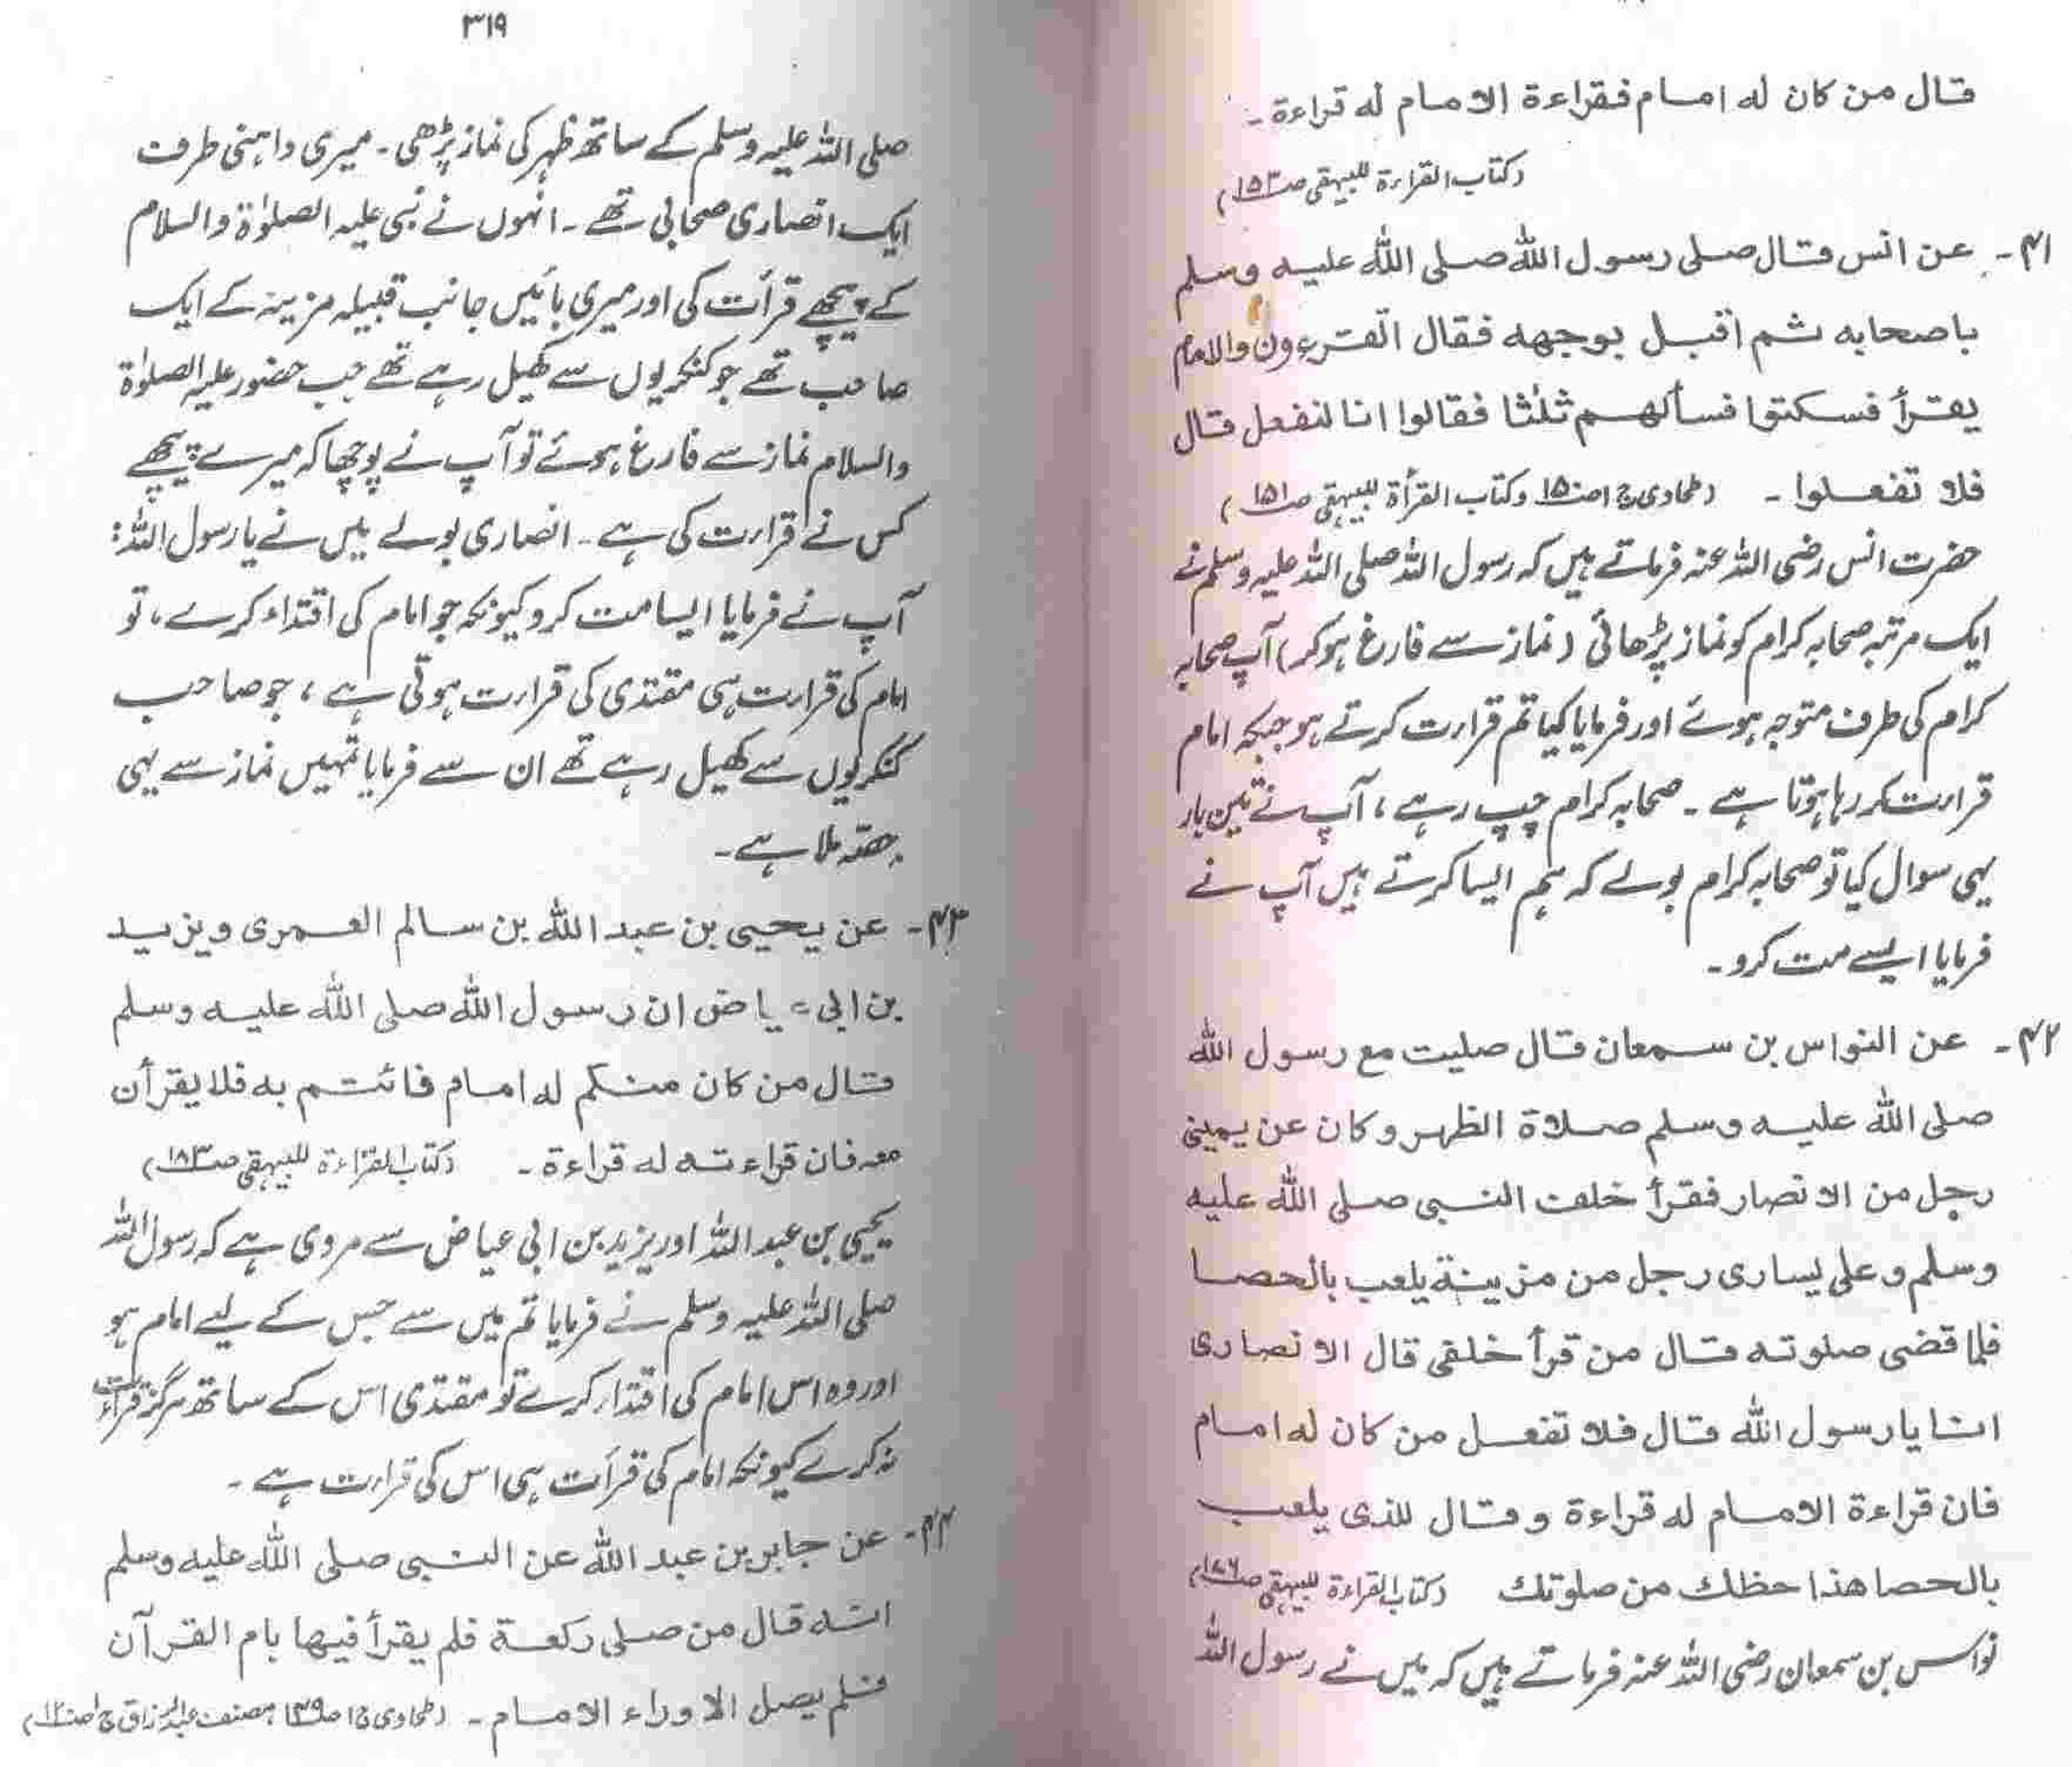 قال من كان له امام فقراءة الامام له قراءة ۔
(کتاب القراءة للبیہقی صـ۱۵۳)
۴۱۔ عن انس قال صلى رسول الله صلى الله عليه وسلم
باصحابه ثم اقبل بوجهه فقال اتقرءون والامام
يقرأ فسكتوا فسألهم ثلثا فقالوا انا لنفعل قال
فلا تفعلوا ۔ (طحاوی ج۱ صـ۱۵۰ وکتاب القرأة للبیہقی صـ۱۵۱)
حضرت انس رضی اللہ عنہ فرماتے ہیں کہ رسول اللہ صلی اللہ علیہ وسلم نے
ایک مرتبہ صحابہ کرام کو نماز پڑھائی (نماز سے فارغ ہو کر) آپ صحابہ
کرام کی طرف متوجہ ہوئے اور فرمایا کیا تم قرارت کرتے ہو جبکہ امام
قرارت کر رہا ہوتا ہے ۔ صحابہ کرام چپ رہے ، آپ نے تین بار
یہی سوال کیا تو صحابہ کرام بولے کہ ہم ایسا کرتے ہیں آپ نے
فرمایا ایسے مت کرو ۔
۴۲۔ عن النواس بن سمعان قال صليت مع رسول الله
صلى الله عليه وسلم صلاة الظهر وكان عن يميني
رجل من الانصار فقرأ خلف النبى صلى الله عليه
وسلم وعلى يسارى رجل من مزينة يلعب بالحصا
فلما قضى صلوته قال من قرأ خلفى قال الانصارى
انا يا رسول الله قال فلا تفعل من كان له امام
فان قراءة الامام له قراءة وقال للذى يلعب
بالحصا هذا حظك من صلوتك (کتاب القراءة للبیہقی صـ۱۷۶)
نواس بن سمعان رضی اللہ عنہ فرماتے ہیں کہ میں نے رسول اللہ
۳۱۹
صلی اللہ علیہ وسلم کے ساتھ ظہر کی نماز پڑھی ۔ میری داہنی طرف
ایک انصاری صحابی تھے ۔ انہوں نے نبی علیہ الصلوٰۃ والسلام
کے پیچھے قرأت کی اور میری بائیں جانب قبیلہ مزینہ کے ایک
صاحب تھے جو کنکریوں سے کھیل رہے تھے جب حضور علیہ الصلوٰۃ
والسلام نماز سے فارغ ہوئے تو آپ نے پوچھا کہ میرے پیچھے
کس نے قرارت کی ہے ۔ انصاری بولے میں نے یا رسول اللہ :
آپ نے فرمایا ایسا مت کرو کیونکہ جو امام کی اقتداء کرے ، تو
امام کی قرارت ہی مقتدی کی قرارت ہوتی ہے ، جو صاحب
کنکریوں سے کھیل رہے تھے ان سے فرمایا تمہیں نماز سے یہی
حصّہ ملا ہے ۔
۴۳۔ عن يحيى بن عبد الله بن سالم العمرى ويزيد
بن ابى عياض ان رسول الله صلى الله عليه وسلم
قال من كان منكم له امام فائتم به فلا يقرأن
معه فان قراءته له قراءة ۔ (کتاب القراءة للبیہقی صـ۱۸۳)
یحییٰ بن عبد اللہ اور یزید بن ابی عیاض سے مروی ہے کہ رسول اللہ
صلی اللہ علیہ وسلم نے فرمایا تم میں سے جس کے لیے امام ہو
اور وہ اس امام کی اقتدار کرے تو مقتدی اس کے ساتھ ہرگز قرأت
نہ کرے کیونکہ امام کی قرأت ہی اس کی قرارت ہے ۔
۴۴۔ عن جابر بن عبد الله عن النبى صلى الله عليه وسلم
انه قال من صلى ركعة فلم يقرأ فيها بام القرآن
فلم يصل الا وراء الامام ۔ (طحاوی ج۱ صـ۱۴۹ ، مصنف عبد الرزاق ج۲ صـ۱۲۰)